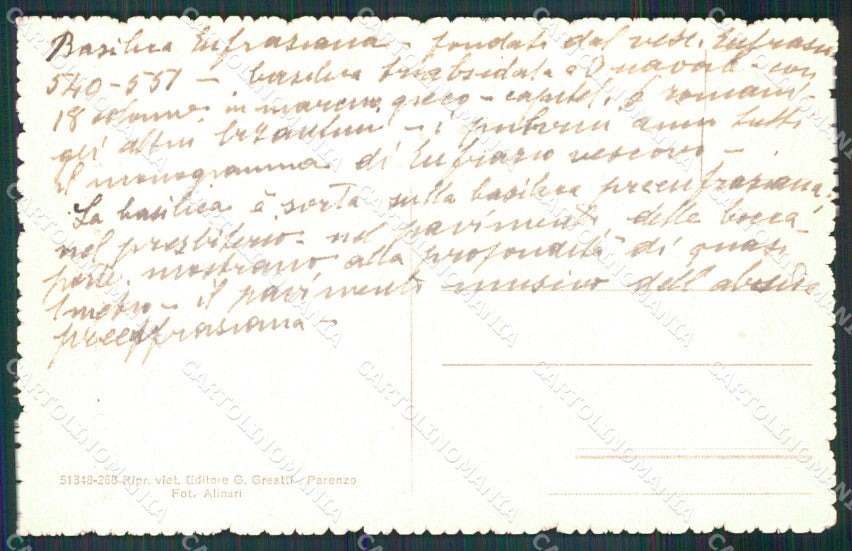 Basilica Eufrasiana - fondata dal vesc. Eufrasio
540-551 - basilica triabsidale a 3 navate - con
18 colonne in marmo greco - capitel. è romani
gli altri bizantini - i pulvini anno tutti
il monogramma di Eufrasio vescovo -
La basilica è sorta sulla basilica preeufrasiana,
nel presbiterio - nel pavimento delle bocca
porte mostrano alla profondità di quasi
1 metro - il pavimento musivo dell'abside
preeufrasiana -
51348-268 Ripr. viet. Editore G. Greatti - Parenzo
Fot. Alinari
CARTOLINOMANIA